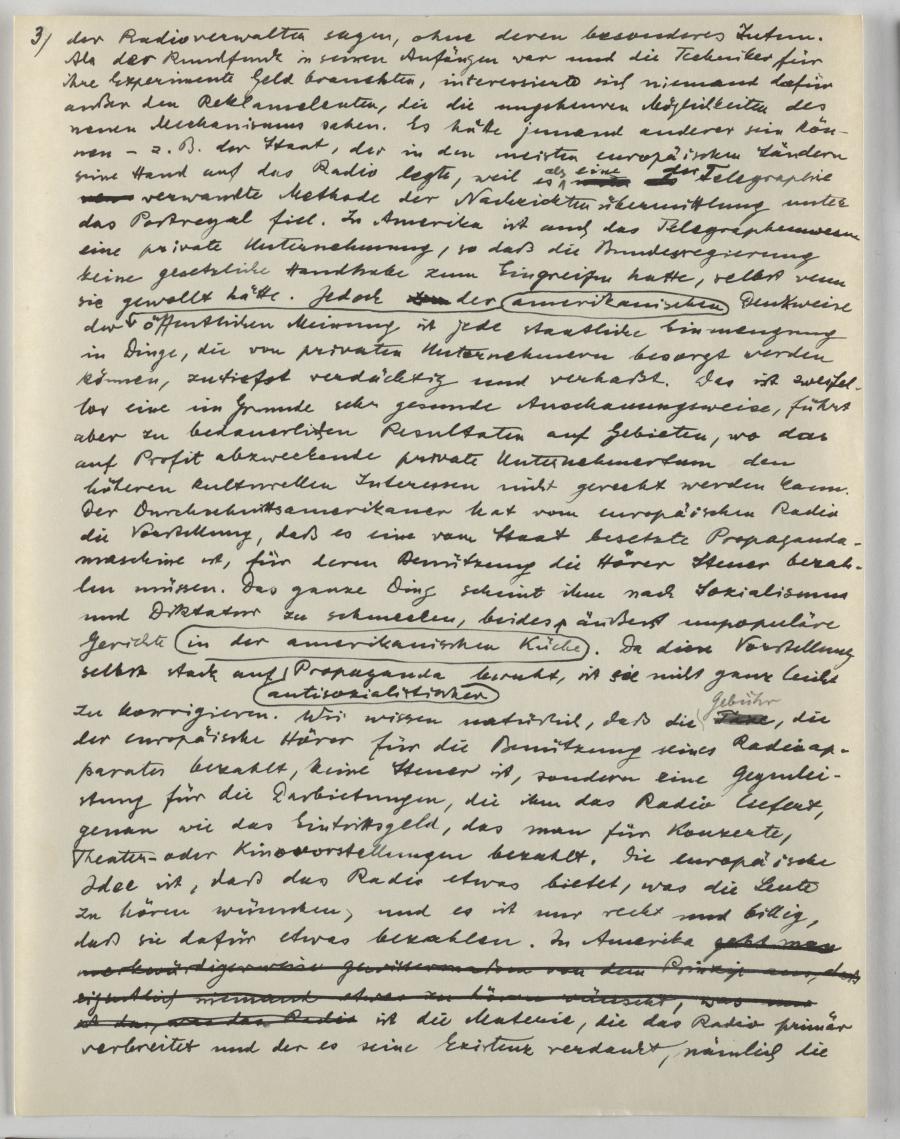 3/ der Radioverwalter sagen, ohne deren besonderes Zutun.
Als der Rundfunk in seinen Anfängen war und die Techniker für
ihre Experimente Geld brauchten, interessierte sich niemand dafür
außer den Reklameleuten, die die ungeheuren Möglichkeiten des
neuen Mechanismus sahen. Es hätte jemand anderer sein kön-
nen – z. B. der Staat, der in den meisten europäischen Ländern
seine Hand auf das Radio legte, weil es als eine der Telegraphie
verwandte Methode der Nachrichtenübermittlung unter
das Postregal fiel. In Amerika ist auch das Telegraphenwesen
eine private Unternehmung, so daß die Bundesregierung
keine gesetzliche Handhabe zum Eingreifen hatte, selbst wenn
sie gewollt hätte. Jedoch der amerikanischen Denkweise
der öffentlichen Meinung ist jede staatliche Einmengung
in Dinge, die von privaten Unternehmern besorgt werden
können, zutiefst verdächtig und verhaßt. Das ist zweifel-
los eine im Grunde sehr gesunde Anschauungsweise, führt
aber zu bedauerlichen Resultaten auf Gebieten, wo das
auf Profit abzweckende private Unternehmertum den
höheren kulturellen Interessen nicht gerecht werden kann.
Der Durchschnittsamerikaner hat vom europäischen Radio
die Vorstellung, daß es eine vom Staat besetzte Propaganda-
maschine ist, für deren Benützung die Hörer Steuer bezah-
len müssen. Das ganze Ding scheint ihm nach Sozialismus
und Diktatur zu schmecken, beides äußerst unpopuläre
Gerichte in der amerikanischen Küche. Da diese Vorstellung
selbst stark auf Propaganda beruht, ist sie nicht ganz leicht
antisozialistischer
zu korrigieren. Wir wissen natürlich, daß die Gebühr, die
der europäische Hörer für die Benützung seines Radioap-
parates bezahlt, keine Steuer ist, sondern eine Gegenlei-
stung für die Darbietungen, die ihm das Radio liefert,
genau wie das Eintrittsgeld, das man für Konzerte,
Theater- oder Kinovorstellungen bezahlt. Die europäische
Idee ist, daß das Radio etwas bietet, was die Leute
zu hören wünschen, und es ist nur recht und billig,
daß sie dafür etwas bezahlen. In Amerika geht man
merkwürdigerweise gewissermaßen von dem Prinzip aus, daß
eigentlich niemand etwas zu hören wünscht, was nun
ist das, was das Radio ist die Materie, die das Radio primär
verbreitet und der es seine Existenz verdankt, nämlich die